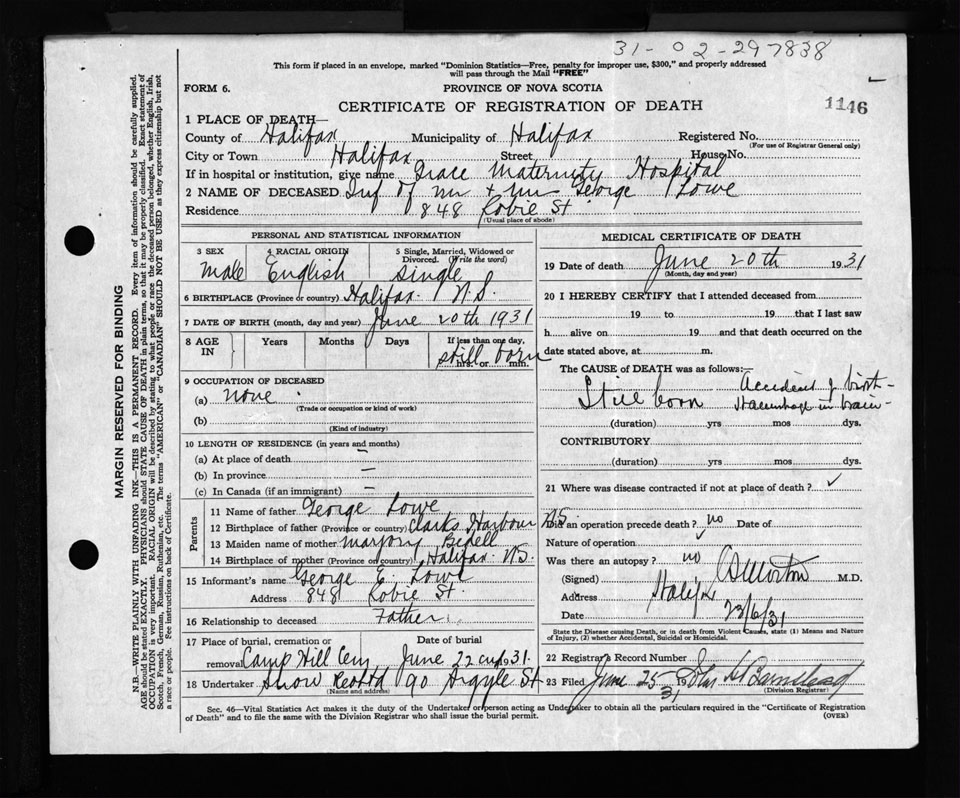 31-02-297838
This form if placed in an envelope, marked "Dominion Statistics—Free, penalty for improper use, $300," and properly addressed
will pass through the Mail "FREE"
FORM 6.
PROVINCE OF NOVA SCOTIA
CERTIFICATE OF REGISTRATION OF DEATH
1146
1 PLACE OF DEATH—
County of Halifax Municipality of Halifax Registered No.
(For use of Registrar General only)
City or Town Halifax Street House No.
If in hospital or institution, give name Grace Maternity Hospital
2 NAME OF DECEASED Inf of Mr + Mrs George Lowe
Residence 848 Robie St.
(Usual place of abode)
PERSONAL AND STATISTICAL INFORMATION
3 SEX 4 RACIAL ORIGIN 5 Single, Married, Widowed or
Divorced. (Write the word)
Male English single
6 BIRTHPLACE (Province or country) Halifax. N.S.
7 DATE OF BIRTH (month, day and year) June 20th 1931
8 AGE IN Years Months Days If less than one day,
still born
hrs. or min.
9 OCCUPATION OF DECEASED
(a) none
(Trade or occupation or kind of work)
(b)
(Kind of industry)
10 LENGTH OF RESIDENCE (in years and months)
(a) At place of death —
(b) In province —
(c) In Canada (if an immigrant) —
Parents
11 Name of father George Lowe
12 Birthplace of father (Province or country) Clarks Harbour N.S.
13 Maiden name of mother Marjory Bedell
14 Birthplace of mother (Province or country) Halifax. N.S.
15 Informant's name George E. Lowe
Address 848 Robie St.
16 Relationship to deceased Father
17 Place of burial, cremation or Date of burial
removal Camp Hill Cem June 22 1931.
18 Undertaker Snow 90 Argyle St
(Name and address)
MEDICAL CERTIFICATE OF DEATH
19 Date of death June 20th 1931
(Month, day and year)
20 I HEREBY CERTIFY that I attended deceased from
19 to 19 that I last saw
h alive on 19 and that death occurred on the
date stated above, at m.
The CAUSE of DEATH was as follows:—
Still born Accident of birth-
Haemorrhage in brain-
(duration) yrs mos dys.
CONTRIBUTORY
(duration) yrs mos dys.
21 Where was disease contracted if not at place of death? ✓
Did an operation precede death? no Date of
Nature of operation ✓
Was there an autopsy? no
(Signed) M.D.
Address Halifx
Date 23/6/31
State the Disease causing Death, or in death from Violent Causes, state (1) Means and Nature
of Injury, (2) whether Accidental, Suicidal or Homicidal.
22 Registrar's Record Number
23 Filed June 25 31 John Barnstead
(Division Registrar)
Sec. 46—Vital Statistics Act makes it the duty of the Undertaker or person acting as Undertaker to obtain all the particulars required in the "Certificate of Registration
of Death" and to file the same with the Division Registrar who shall issue the burial permit.
(OVER)
MARGIN RESERVED FOR BINDING
N.B.—WRITE PLAINLY WITH UNFADING INK—THIS IS A PERMANENT RECORD. Every item of information should be carefully supplied.
AGE should be stated EXACTLY. PHYSICIANS should STATE CAUSE OF DEATH in plain terms, so that it may be properly classified. Exact statement of
OCCUPATION is very important. RACIAL ORIGIN will be described by stating to what people or race the deceased person belonged, whether English, Irish,
Scotch, French, German, Russian, Ruthenian, etc. The terms "AMERICAN" or "CANADIAN" SHOULD NOT BE USED as they express citizenship but not
a race or people. See instructions on back of Certificate.